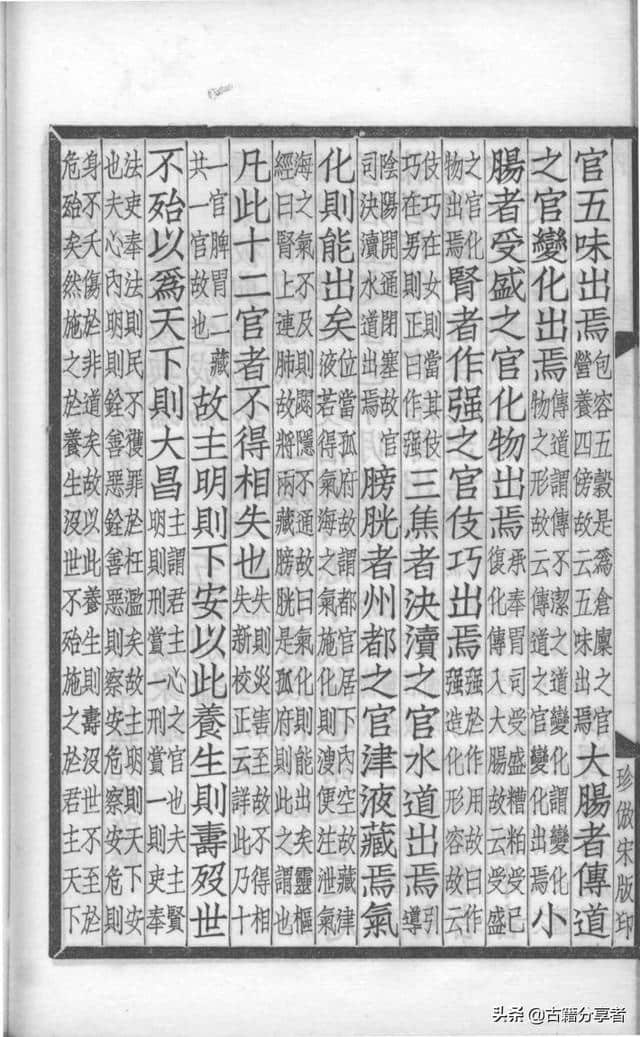 官五味出焉包容五穀是爲倉廩之官營養四傍故云五味出焉大腸者傳道
之官變化出焉傳道謂傳不潔之道變化謂變化物之形故云傳道之官變化出焉小
腸者受盛之官化物出焉承奉胃司受盛糟粕受已復化傳入大腸故云受盛
之官化物出焉腎者作强之官伎巧出焉强於作用故曰作强造化形容故云
伎巧在女則當其伎巧在男則正曰作强三焦者決瀆之官水道出焉引導
陰陽開通閉塞故官司決瀆水道出焉膀胱者州都之官津液藏焉氣
化則能出矣位當孤府故謂都官居下內空故藏津液若得氣海之氣施化則溲便注泄氣
海之氣不及則閟隱不通故曰氣化則能出矣靈樞經曰腎上連肺故將兩藏膀胱是孤府則此之謂也
凡此十二官者不得相失也失則災害至故不得相失新校正云詳此乃十
一官脾胃二藏共一官故也故主明則下安以此養生則壽歿世
不殆以爲天下則大昌主謂君主心之官也夫主賢明則刑賞一刑賞一則吏奉
法吏奉法則民不獲罪於枉濫矣故主明則天下安也夫心內明則銓善惡銓善惡則察安危察安危則
身不夭傷於非道矣故以此養生則壽沒世不至於危殆矣然施之於養生沒世不殆施之於君主天下
珍倣宋版印
头条@古籍分享者